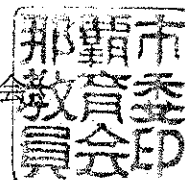 那覇市
教育委
員会印
会